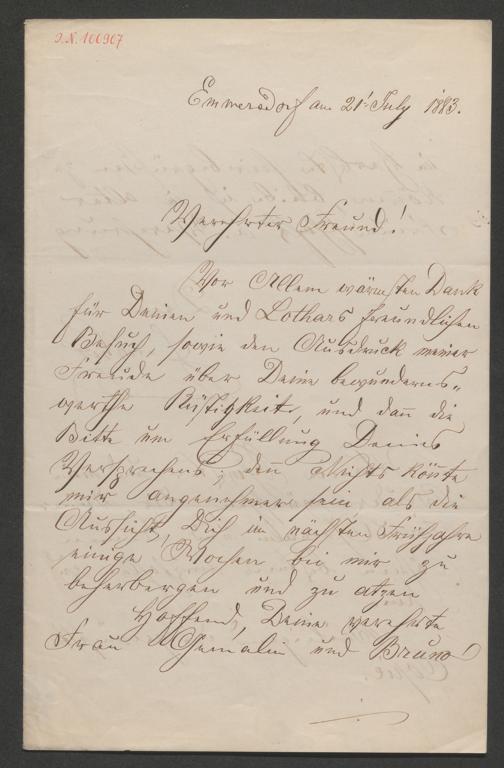 J.N. 166907
Emmersdorf am 21t July 1883.
Verehrter Freund!
Vor Allem wärmsten Dank
für Deinen und Lothars freundlichen
Besuch, sowie den Ausdruck meiner
Freude über Deine bewunderns=
werthe Rüstigkeit, und dan̄ die
Bitte um Erfüllung Deines
Versprechens; den̄ Nichts kön̄te
mir angenehmer sein als die
Aussicht, Dich im nächsten Frühjahre
einige Wochen bei mir zu
beherbergen und zu atzen
Hoffend, Deine verehrte
Frau Gemalin und Bruno